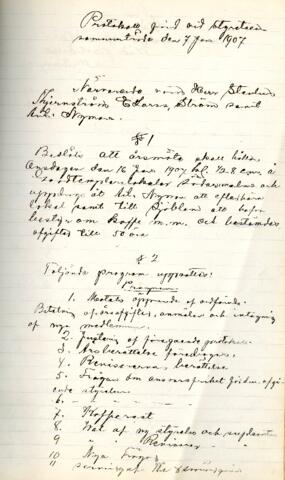 Protokoll förd vid styrelse
sammanträde den 7 Jan 1907
Närvarande voro Herr
Stjernström E Larss, Ström samt
Nyman.
§ 1
Beslöts att årsmöte skall hållas
Onsdagen den 16 Jan 1907 kl. 1/2 8 e.m. å
och
uppdrogs åt Nyman att efterhöra
lokal samt till Sjöblom att
bestyr om kaffe m.m. och bestämdes
afgiften till 50 öre
§ 2
Följande program uppsattes:
Program
1. Mötets öppnande af ordförande.
Betalning af årsafgifter, anmälan och intagning
af nya medlemmar
2. Justering af föregående protokoll
3. Årsberättelse föredrages
4. Revisorernas berättelse
5. Frågan om ansvarsfrihet för den afgå
ende styrelsen
6. "
7. Kafferast
8. Val af ny styrelse och suppleanter
9 " " Revisorer
10 Nya Frågor
11